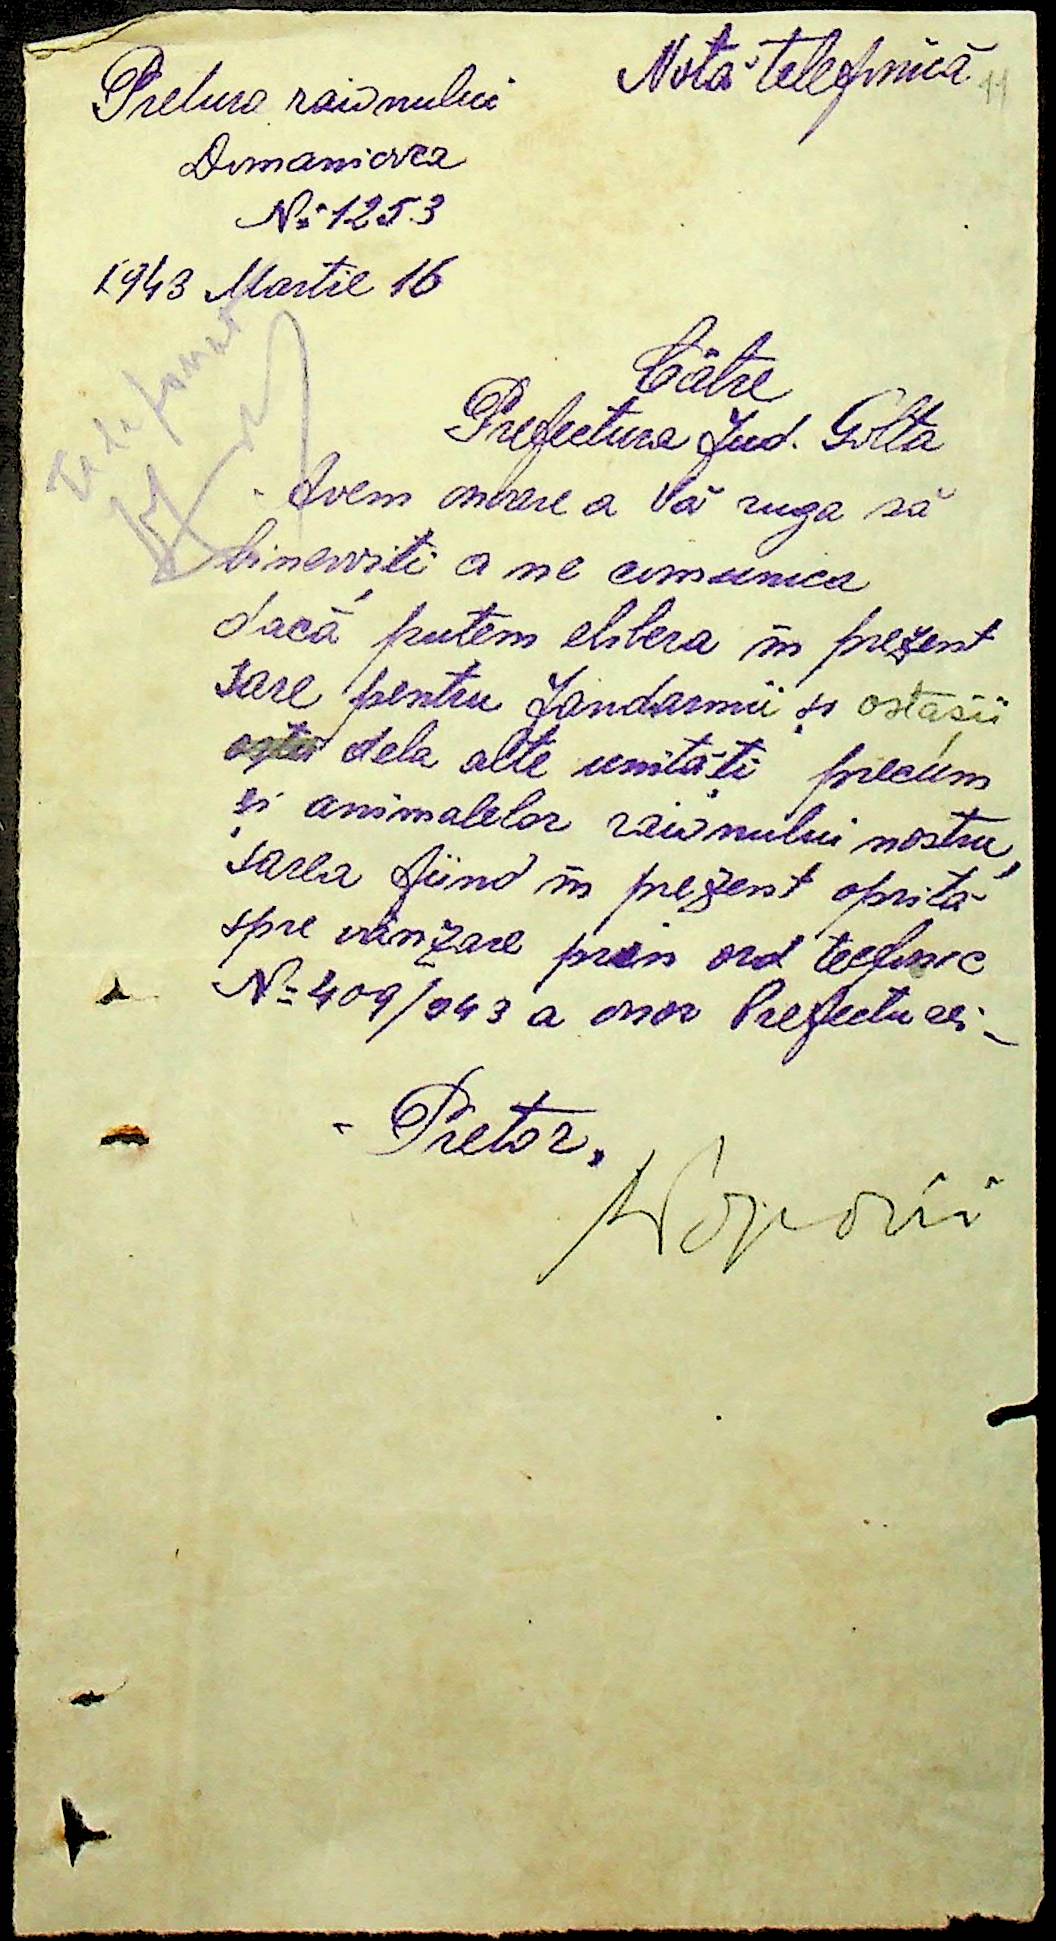 Notă telefonică 11
Pretura raionului
Domaniovca
No 1253
1943 Martie 16
Către
Prefectura Jud. Golta
Avem onoare a Vă ruga să
binevoiți a ne comunica
dacă putem elibera în prezent
sare pentru Jandarmii și ostașii
dela alte unități precum
și animalelor raionului nostru,
sarea fiind în prezent oprită
spre vânzare prin ord telefonic
No 409/943 a onor Prefecturei
Pretor,